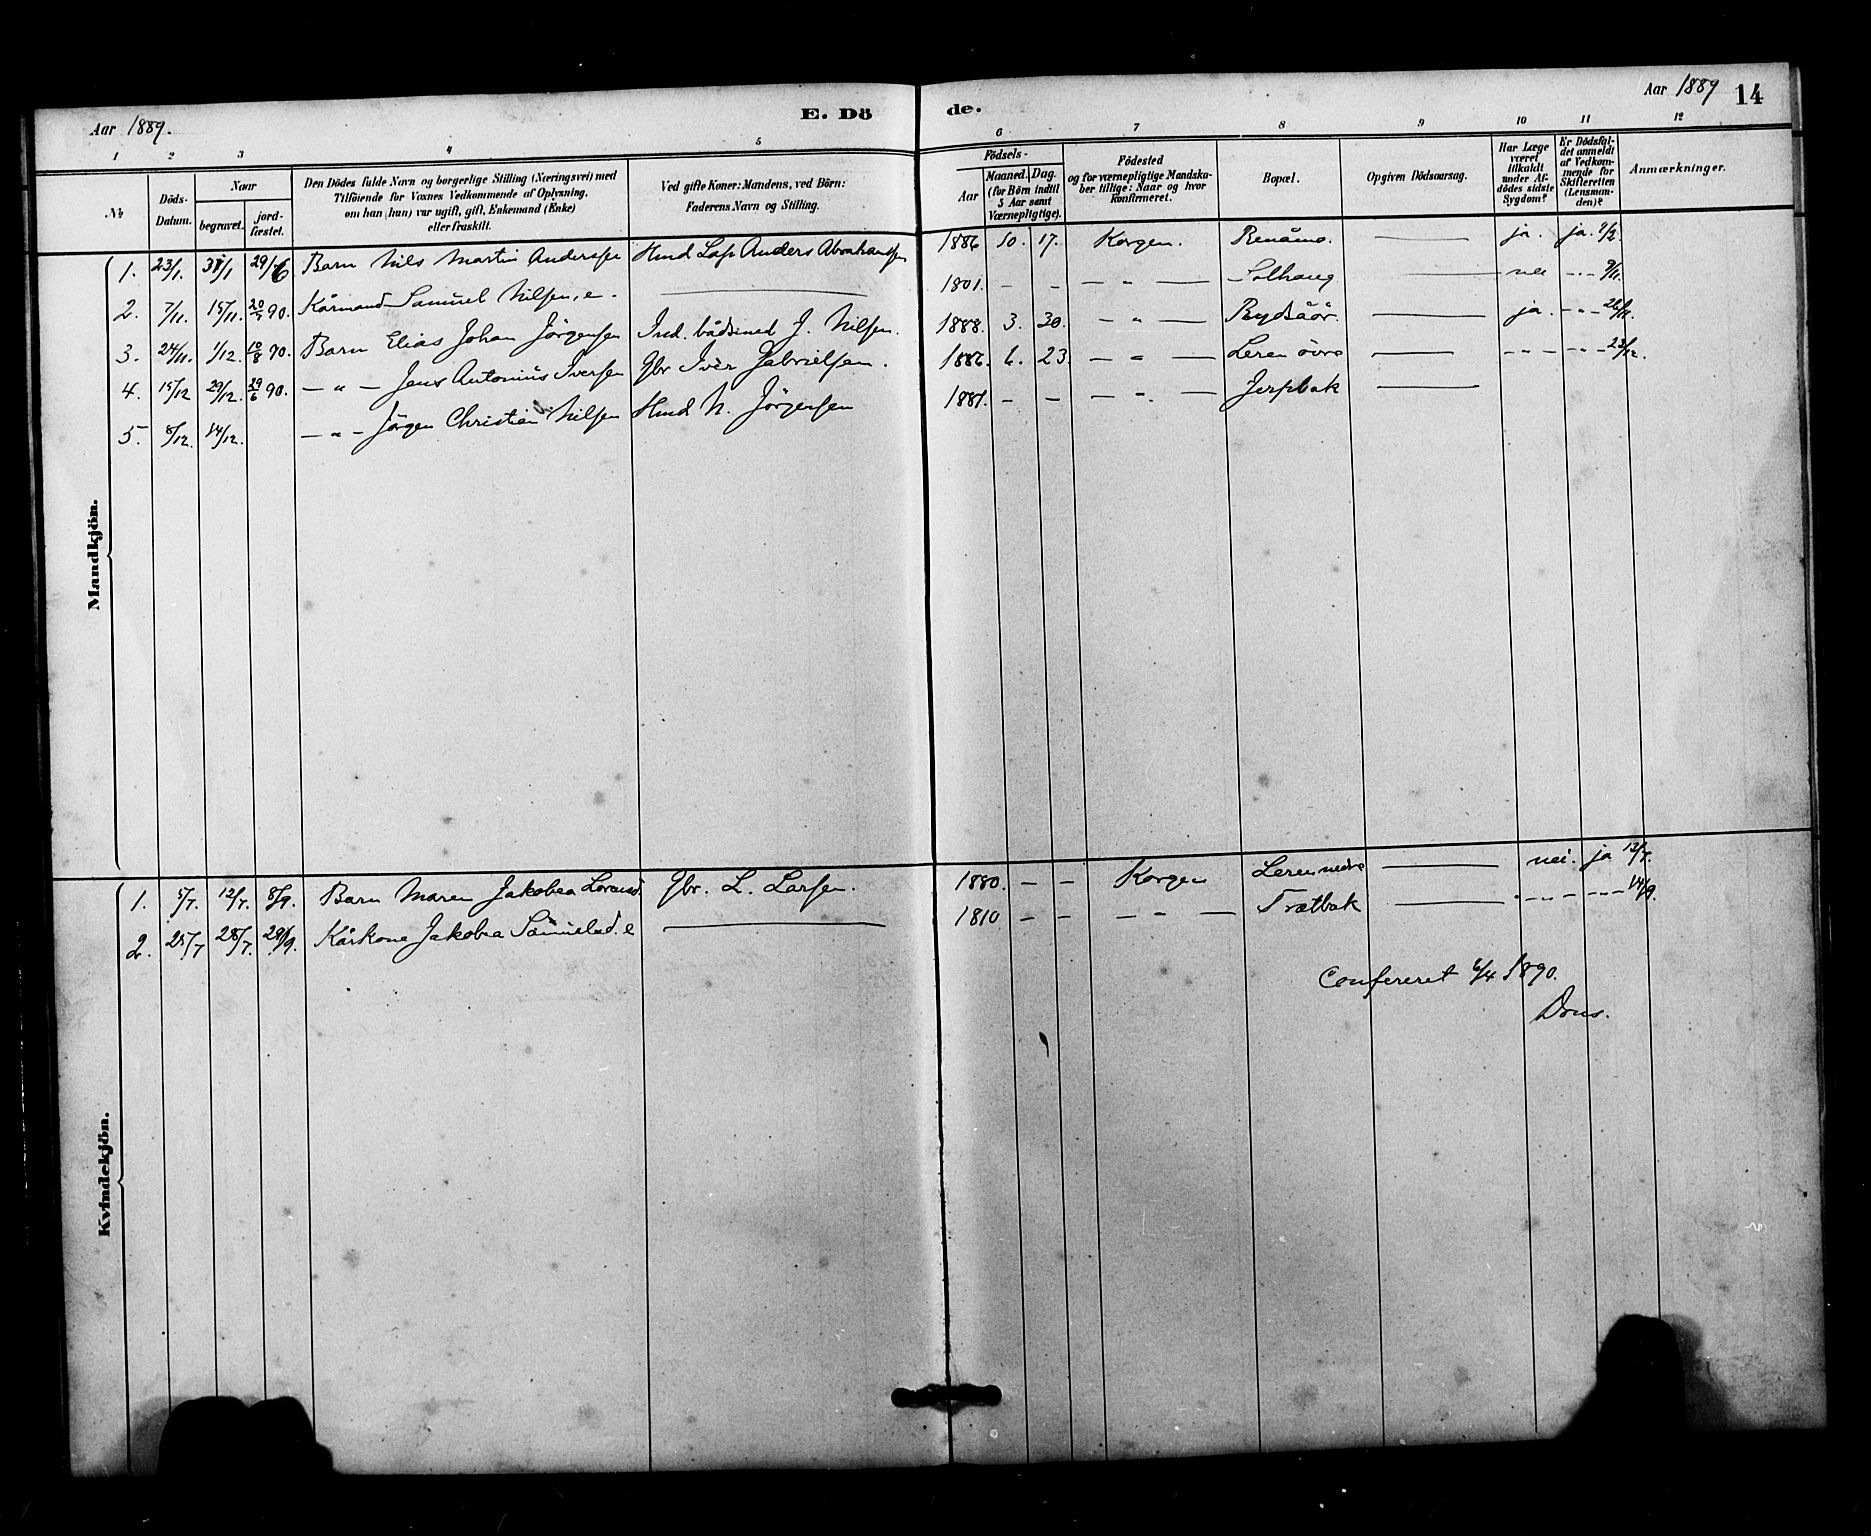 Aar 1889.
E. Dö de.
Aar 1889
14
1 2 3 4 5 6 7 8 9 10 11 12
№
Döds-Datum.
Naar
begravet.
jord-fæstet.
Den Dödes fulde Navn og borgerlige Stilling (Næringsvei) med
Tilföiende for Voxnes Vedkommende af Oplysning.
om han (hun) var ugift, gift, Enkemand (Enke)
eller fraskilt.
Ved gifte Koner: Mandens, ved Börn:
Faderens Navn og Stilling.
Födsels-
Aar
Maaned. Dag.
(for Börn indtil
5 Aar samt
Værnepligtige).
Födested
og for værnepligtige Mandska-
ber tillige: Naar og hvor
konfirmeret.
Bopæl.
Opgiven Dödsaarsag.
Har Læge
været
tilkaldt
under Af-
dödes sidste
Sygdom?
Er Dödsfal-
det anmeldt
af Vedkom-
mende for
Skifteretten
(Lensman-
den)?
Anmærkninger.
Mandkjön.
1. 23/1. 31/1 29/6 Barn Nils Martin Andersen Hmd Lap Anders Abrahamsen 1886 10. 17. Korgen. Renåmo. — ja. ja. 9/2.
2. 7/11. 15/11. 20/7 90. Kårmand Samuel Nilsen, e. — 1801. - - - " - Solhaug — nei - " - 9/11.
3. 24/11. 1/12. 10/8 90. Barn Elias Johan Jörgensen Ind. bådsmed J. Nilsen. 1888. 3. 30. - " - Rydsåör. — ja. - " - 26/11.
4. 15/12 29/12. 29/6 90. - " - Jens Antonius Iversen Gbr Iver Gabrielsen. 1886. 6. 23. - " - Leren övre — - " - - " - 23/12.
5. 8/12. 14/12. - " - Jörgen Christian Nilsen Hmd N. Jörgensen 1881. - - - " - Jerpbak —
Kvindekjön.
1. 5/7. 12/7. 8/9. Barn Maren Jakobea Lorensd. Gbr. L. Larsen. 1880. - - Korgen Leren nedre — nei. ja 12/7.
2. 25/7 28/7. 28/9. Kårkone Jakobea Samuelsd. e — 1810 - - - " - Trætbak — - " - - " - 14/9.
Confereret 6/4 1890.
Dons.